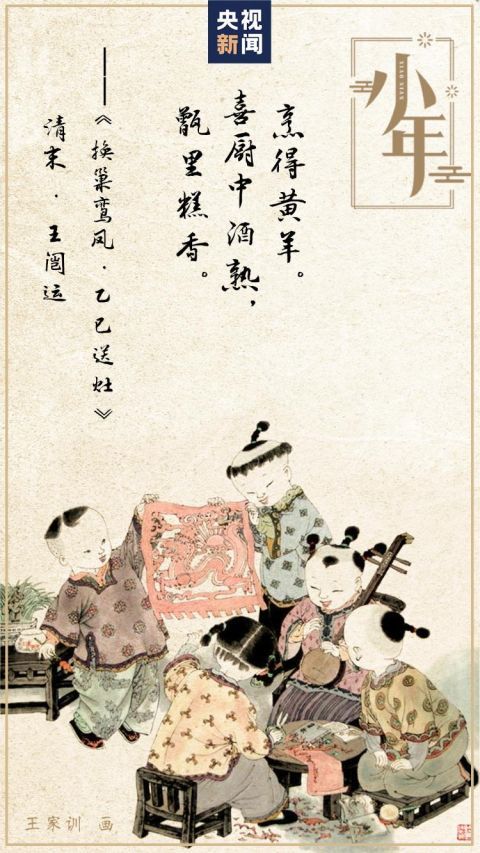 央视
新闻
小年
XIAO NIAN
烹得黄羊。
喜厨中酒熟，
甑里糕香。
——《换巢鸾凤·乙巳送灶》
清末·王闿运
王家训 画